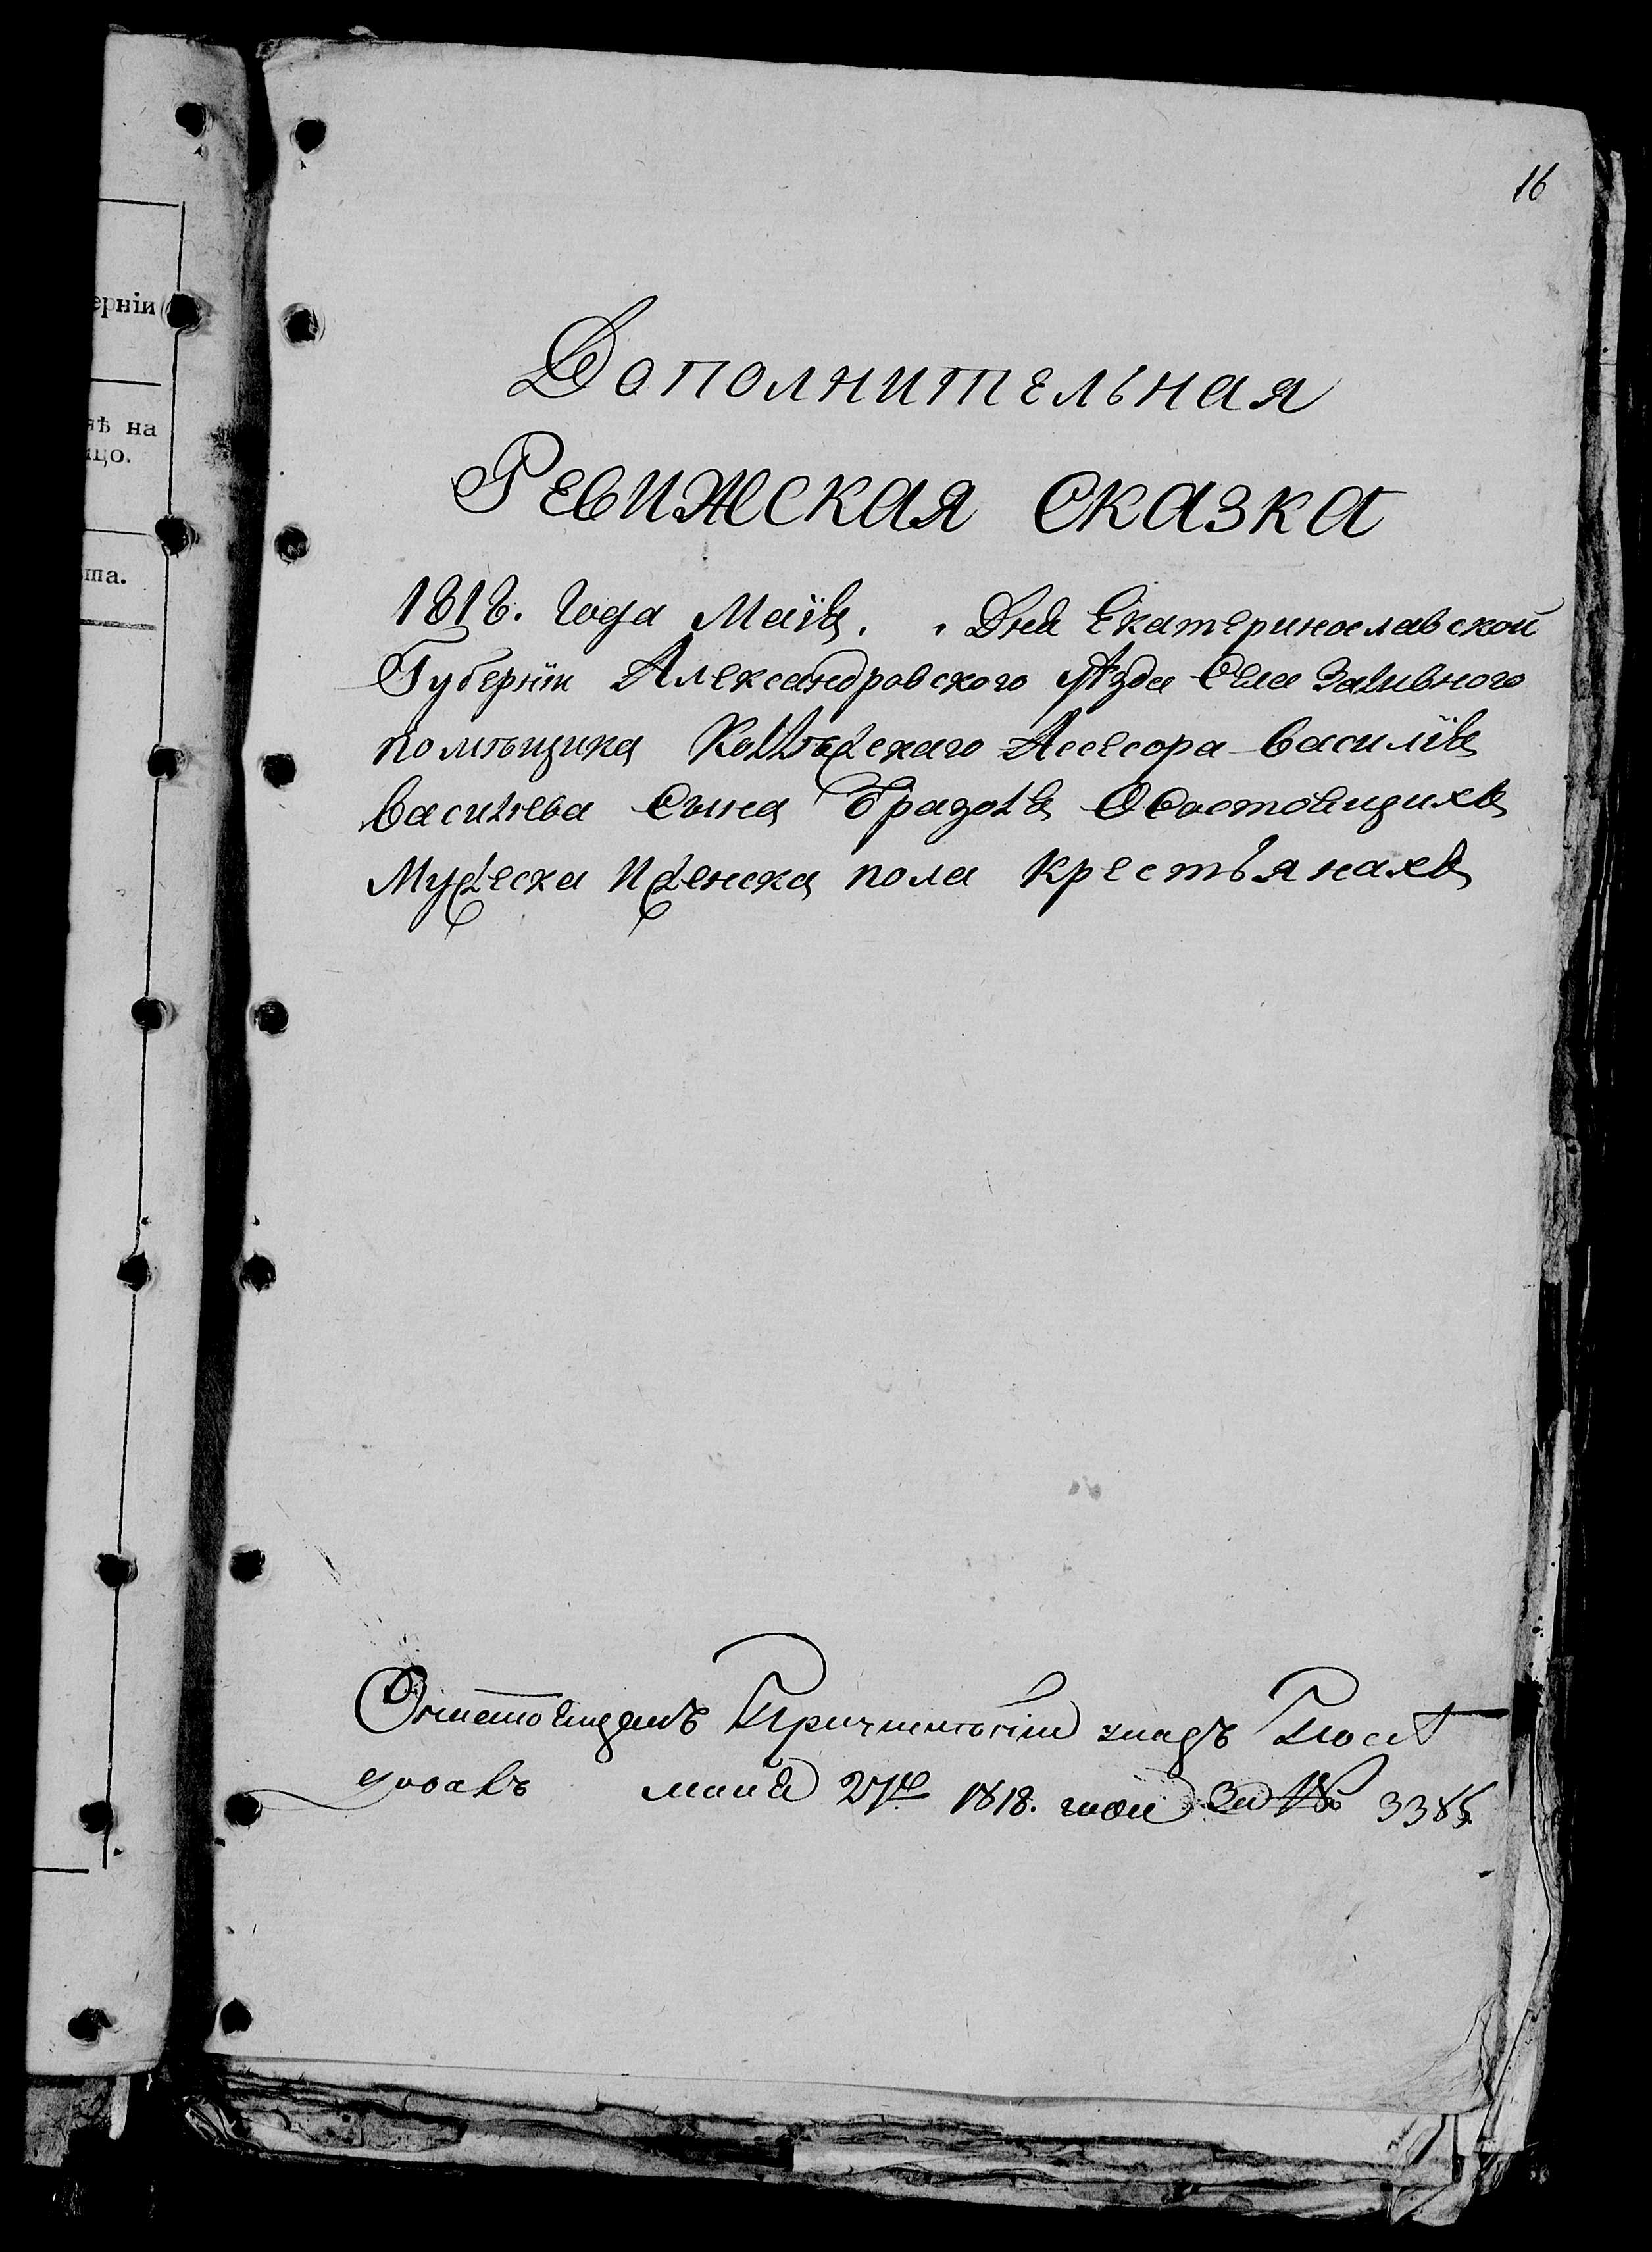 16
ерніи
нѣ на
ицо.
ша.
Дополнительная
Ревижская сказка
1818. Года Маія. Дня Екатеринославской
Губерніи Александровского уѣзда Села Заливного
помѣщика Коллежскаго Асесора Василія
Васильева Сына О Состоящихъ
Мужеска И Женска пола крестьянахъ
маия 27го 1818. года За № 3385